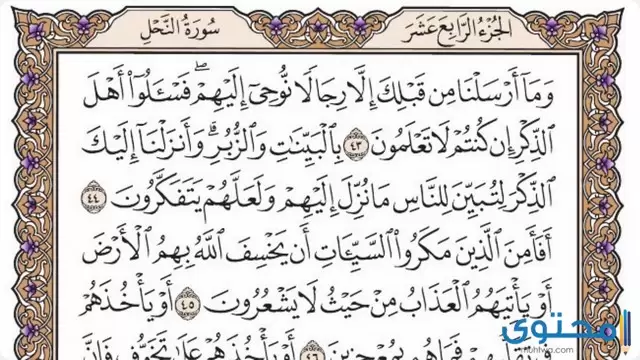 الجُزْءُ الرَّابِعَ عَشَرَ
سُورَةُ النَّحْلِ
وَمَآ أَرْسَلْنَا مِن قَبْلِكَ إِلَّا رِجَالًا نُّوحِىٓ إِلَيْهِمْ ۖ فَسْـَٔلُوٓا۟ أَهْلَ
ٱلذِّكْرِ إِن كُنتُمْ لَا تَعْلَمُونَ ٤٣ بِٱلْبَيِّنَٰتِ وَٱلزُّبُرِ ۗ وَأَنزَلْنَآ إِلَيْكَ
ٱلذِّكْرَ لِتُبَيِّنَ لِلنَّاسِ مَا نُزِّلَ إِلَيْهِمْ وَلَعَلَّهُمْ يَتَفَكَّرُونَ ٤٤
أَفَأَمِنَ ٱلَّذِينَ مَكَرُوا۟ ٱلسَّيِّـَٔاتِ أَن يَخْسِفَ ٱللَّهُ بِهِمُ ٱلْأَرْضَ
أَوْ يَأْتِيَهُمُ ٱلْعَذَابُ مِنْ حَيْثُ لَا يَشْعُرُونَ ٤٥ أَوْ يَأْخُذَهُمْ
فَمَا هُم بِمُعْجِزِينَ ٤٦ أَوْ يَأْخُذَهُمْ عَلَىٰ تَخَوُّفٍ فَإِنَّ
محتوى
muhtwa.com